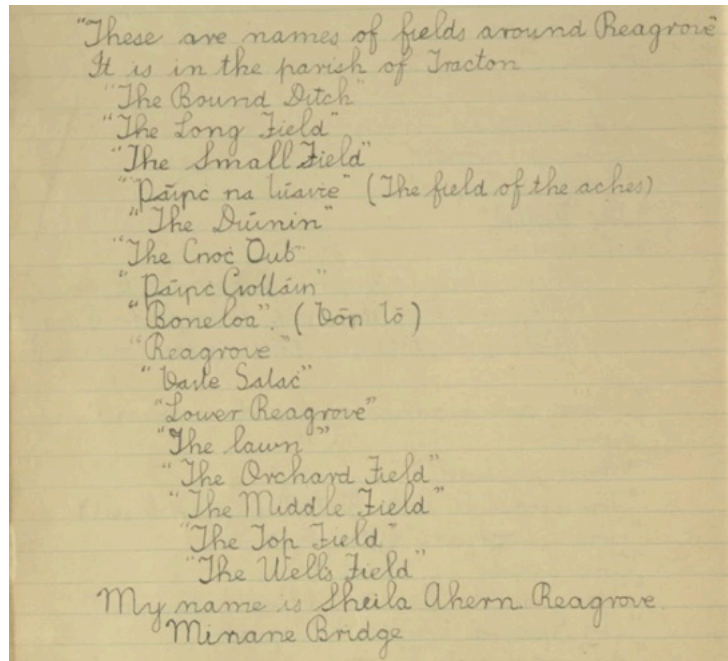 "These are names of fields around Reagrove
It is in the parish of Tracton
"The Bound Ditch"
"The Long Field"
"The Small Field"
"Páirc na (The field of the aches)
"The Drinin"
"The Cnoc Dub"
"Páirc
"Boneloa". (bón ló)
"Reagrove"
"Baile Salac"
"Lower Reagrove"
"The lawn"
"The Orchard Field"
"The Middle Field"
"The Top Field"
"The Wells Field"
My name is Sheila Ahern Reagrove.
Minane Bridge